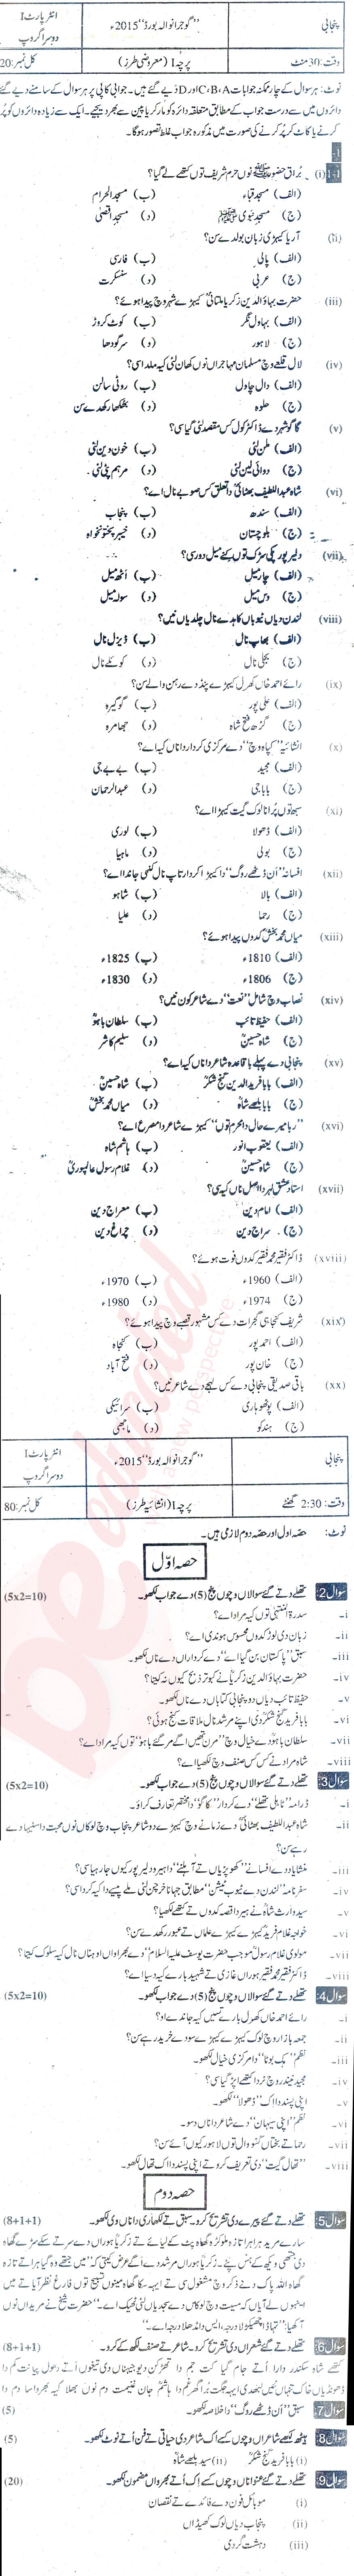 پنجابی
"گوجرانوالہ بورڈ" 2015ء
انٹر پارٹ I
دوسرا گروپ
وقت: 30 منٹ
پرچہ 1 (معروضی طرز)
کل نمبر: 20
نوٹ: ہر سوال کے چار ممکنہ جوابات C، B، A اور D دیے گئے ہیں۔ جوابی کاپی پر ہر سوال کے سامنے دیے گئے
دائروں میں سے درست جواب کے مطابق متعلقہ دائرہ کو مارکر یا پین سے بھر دیجیے۔ ایک سے زیادہ دائروں کو پُر
کرنے یا کاٹ کر پُر کرنے کی صورت میں مذکورہ جواب غلط تصور ہوگا۔
-1
1-1 (i) بُراق حضور ﷺ نوں حرم شریف توں کتھے لے گیا؟
(الف) مسجد قباء (ب) مسجد الحرام
(ج) مسجد نبوی ﷺ (د) مسجد اقصیٰ
(ii) آریا کیہڑی زبان بولدے سن؟
(الف) پالی (ب) فارسی
(ج) عربی (د) سنسکرت
(iii) حضرت بہاؤالدین زکریا ملتانیؒ کیہڑے شہر وچ پیدا ہوئے؟
(الف) بہاول نگر (ب) کوٹ کروڑ
(ج) لاہور (د) سرگودھا
(iv) لال قلعے وچ مسلمان مہاجراں نوں کھان لئی کیہ ملدا سی؟
(الف) دال چاول (ب) روٹی سالن
(ج) حلوہ (د) بھکھا رکھدے سن
(v) گاگو شہر دے ڈاکٹر کول کس مقصد لئی گیا سی؟
(الف) ملن لئی (ب) خون دین لئی
(ج) دوائی لین لئی (د) مرہم پٹی لئی
(vi) شاہ عبداللطیف بھٹائیؒ دا تعلق کس صوبے نال اے؟
(الف) سندھ (ب) پنجاب
(ج) بلوچستان (د) خیبر پختونخواہ
(vii) دلیر پور پکی سڑک توں کِنّے میل دور سی؟
(الف) چار میل (ب) اَٹھ میل
(ج) دس میل (د) سولہ میل
(viii) لندن دیاں ٹیوباں کاہدے نال چلدیاں نیں؟
(الف) بھاپ نال (ب) ڈیزل نال
(ج) بجلی نال (د) کوئلے نال
(ix) رائے احمد خاں کھرل کیہڑے پنڈ دے رہن والے سن؟
(الف) علی پور (ب) گوگیرہ
(ج) گڑھ فتح شاہ (د) جھامرہ
(x) انشائیہ "کپاہ وچ" دے مرکزی کردار دا ناں کیہ اے؟
(الف) مجید (ب) بے بے جی
(ج) باباجی (د) عبدالرحمان
(xi) سبھ توں پُرانا لوک گیت کیہڑا اے؟
(الف) ڈھولا (ب) لوری
(ج) بولی (د) ماہیا
(xii) افسانہ "اَن ڈٹھے روگ" دا کیہڑا کردار تاپ نال کنبی جاندا اے؟
(الف) بالا (ب) شاہو
(ج) رحما (د) علیا
(xiii) میاں محمد بخشؒ کدوں پیدا ہوئے؟
(الف) 1810ء (ب) 1825ء
(ج) 1806ء (د) 1830ء
(xiv) نصاب وچ شامل "نعت" دے شاعر کون نیں؟
(الف) حفیظ تائب (ب) سلطان باہوؒ
(ج) شاہ حسینؒ (د) سلیم کاشر
(xv) پنجابی دے پہلے باقاعدہ شاعر دا ناں کیہ اے؟
(الف) بابا فرید الدین گنج شکرؒ (ب) شاہ حسینؒ
(ج) بابا بلھے شاہؒ (د) میاں محمد بخشؒ
(xvi) "ربا میرے حال دا محرم توں" کیہڑے شاعر دا مصرع اے؟
(الف) یعقوب انور (ب) ہاشم شاہ
(ج) شاہ حسینؒ (د) غلام رسول عالمپوریؒ
(xvii) استاد عشق لہر دا اصل ناں کیہ سی؟
(الف) امام دین (ب) معراج دین
(ج) سراج دین (د) چراغ دین
(xviii) ڈاکٹر فقیر محمد فقیر کدوں فوت ہوئے؟
(الف) 1960ء (ب) 1970ء
(ج) 1974ء (د) 1980ء
(xix) شریف کنجاہی گجرات دے کس مشہور قصبے وچ پیدا ہوئے؟
(الف) احمد پور (ب) کنجاہ
(ج) خان پور (د) فتح آباد
(xx) باقی صدیقی پنجابی دے کس لہجے دے شاعر نیں؟
(الف) پوٹھوہاری (ب) سرائیکی
(ج) ہندکو (د) ماجھی
پنجابی
"گوجرانوالہ بورڈ" 2015ء
انٹر پارٹ I
دوسرا گروپ
وقت: 2:30 گھنٹے
پرچہ 1 (انشائیہ طرز)
کل نمبر: 80
نوٹ: حصہ اول اور حصہ دوم لازمی ہیں۔
حصہ اوّل
سوال 2: تھلے دتے گئے سوالاں وچوں پنج (5) دے جواب لکھو۔ (5x2=10)
i- سدرۃ المنتہیٰ توں کیہ مراد اے؟
ii- زبان دی لوڑ کدوں محسوس ہوندی اے؟
iii- سبق "پاکستان بن گیا اے" دے کرداراں دے ناں لکھو۔
iv- حضرت بہاؤالدین زکریاؒ نے کبوتر ذبح کیوں نہ کیتا؟
v- حفیظ تائب دیاں دو پنجابی کتاباں دے ناں لکھو۔
vi- بابا فرید گنج شکرؒ دی اپنے مرشد نال ملاقات کنج ہوئی؟
vii- سلطان باہوؒ دے خیال وچ "مرن تھیں اگے مر گئے باہو" توں کیہ مراد اے؟
viii- شاہ مراد نے کس کس صنف وچ لکھیا اے؟
سوال 3: تھلے دتے گئے سوالاں وچوں پنج (5) دے جواب لکھو۔ (5x2=10)
i- ڈرامہ "ٹاہلی تھلے" دے کردار "گاگو" دا مختصر تعارف کراؤ۔
ii- شاہ عبداللطیف بھٹائیؒ دے زمانے وچ کیہڑے دو شاعر پنجاب وچ لوکاں نوں محبت دا سنیہا دے
رہے سن؟
iii- منشا یاد دے افسانے "کھوپڑیاں تے آہلنے" دا ہیرو دلیر پور کیوں جا رہیا سی؟
iv- سفرنامہ "لندن دے ٹیوب سٹیشن" مطابق جہانا خرچن لئی ملے پیسے دا کیہ کردا سی؟
v- سید وارث شاہؒ نے ہیر دا قصہ کدوں تے کتھے لکھیا؟
vi- خواجہ غلام فریدؒ کیہڑے کیہڑے علماں تے عبور رکھدے سن؟
vii- مولوی غلام رسولؒ موجب حضرت یوسف علیہ السلام دے بھراواں اوہناں نال کیہ سلوک کیتا؟
viii- ڈاکٹر فقیر محمد فقیر ہوراں غازی تے شہید بارے کیہ دسیا اے؟
سوال 4: تھلے دتے گئے سوالاں وچوں پنج (5) دے جواب لکھو۔ (5x2=10)
i- رائے احمد خاں کھرل بارے تسیں کیہ جاندے او؟
ii- جمعہ بازار وچ لوک کیہڑے کیہڑے سودے خرید رہے سن؟
iii- نظم "یک بوٹا" دا مرکزی خیال لکھو۔
iv- مجید نیندر وچ خردا کتھے اپڑ گیا سی؟
v- اپنی پسند دا اک "ڈھولا" لکھو۔
vi- نظم "اپنی سیہان" دے شاعر دا ناں دسو۔
vii- رحما تے بختاں گشو وال توں لاہور کیوں آئے سن؟
viii- "تھال گیت" دی تعریف کرو تے اپنی پسند دا اک تھال لکھو۔
حصہ دوم
سوال 5: تھلے دتے گئے پیرے دی تشریح کرو۔ سبق تے لکھاری دا ناں وی لکھو۔ (8+1+1)
سارے مرید ہرا ہرا تازہ ملوک گھاہ پٹ کے لیائے تے زکریاؒ ہوراں دے سر تے سکے سڑے گھاہ
دی مٹھی ویکھ کے ہس پئے۔ زکریاؒ ہوراں مرشد دے اگے عرض کیتی کہ "میں جتھے وہ گیا ہرا تے تازہ
گھاہ اللہ پاک دے ذکر وچ مشغول سی تے ایہہ سکا گھاہ مینوں تسبیح توں فارغ نظر آیا تے میں
ایہنوں لے آیاں کہ مسیت وچ لوکاں دے سجدیاں لئی ٹھیک اے۔" حضرت شیخ نے مریداں نوں
آکھیا: "تہاڈا اجے کولا درجہ، ایس دا اُچا درجہ اے۔"
سوال 6: تھلے دتے گئے شعراں دی تشریح کرو۔ شاعر تے صنف لکھ کے کرو۔ (8+1+1)
کتھے شاہ سکندر دارا اُتے جام گیا کت جم دا تھڑکن دیو جیہناں دی تیغوں اُتے دھول پیانت کم دا
ڈھونڈیاں خاک تنہاں نہیں لبھدی ایہہ جگت سرا گھر غم دا ہاشمؔ جان غنیمت دم نوں بھلا کیہ بھروسا دم دا
سوال 7: سبق "اَن ڈٹھے روگ" دا خلاصہ لکھو۔ (5)
سوال 8: ہیٹھ لکھے شاعراں وچوں کسے اک شاعر دی حیاتی تے فن اُتے نوٹ لکھو۔ (5)
(i) بابا فرید گنج شکرؒ (ii) سید بلھے شاہؒ
سوال 9: تھلے دتے گئے عنواناں وچوں کسے اِک اُتے بھرواں مضمون لکھو۔ (20)
(i) موبائل فون دے فائدے تے نقصان
(ii) پنجاب دیاں لوک کھیڈاں
(iii) دہشت گردی